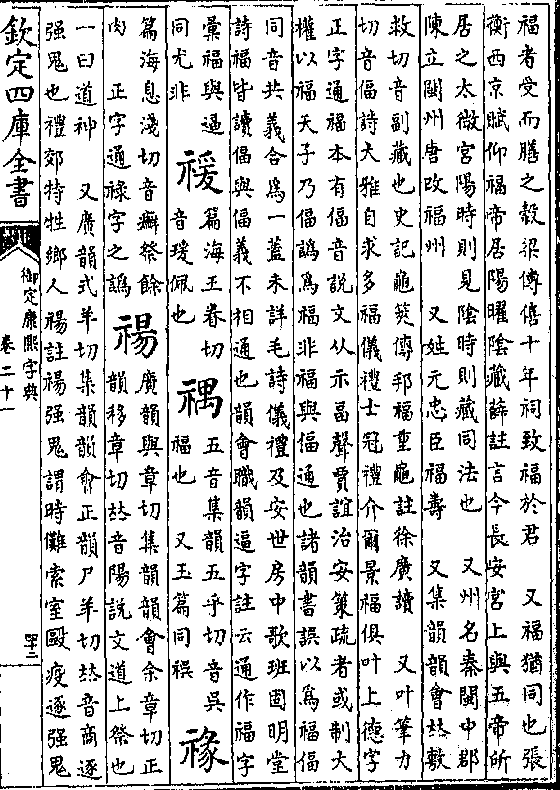 福者受而膳之穀梁傳僖十年祠致福於君　又福猶同也張
衡西京賦仰福帝居陽曜陰藏薛註言今長安宮上與五帝所
居之太微宮陽時則見陰時則藏同法也　又州名秦閩中郡
陳立閩州唐改福州　又姓元忠臣福壽　又集韻韻會𠀤敷
救切音副藏也史記龜筴傳邦福重龜註徐廣讀　又叶筆力
切音偪詩大雅自求多福儀禮士冠禮介爾景福俱叶上德字
正字通福本有偪音說文从示畐聲賈誼治安策疏者或制大
權以福天子乃偪譌爲福非福與偪通也諸韻書誤以爲福偪
同音共義合爲一蓋未詳毛詩儀禮及安世房中歌班固明堂
詩福皆讀偪與偪義不相通也韻會職韻逼字註云通作福字
彙福與逼同尤非　禐篇海王眷切音瑗佩也　禑五音集韻五乎切音吳福也　又玉篇同祦　禒
篇海息淺切音癬祭餘肉　正字通祿字之譌　禓廣韻與章切集韻韻會余章切正韻移章切𠀤音陽說文道上祭也
一曰道神　又廣韻式羊切集韻韻會正韻尸羊切𠀤音商逐
强鬼也禮郊特牲鄉人禓註禓强鬼謂時儺索室毆疫逐强鬼
欽定四庫全書
御定康熙字典
卷二十一
四十二